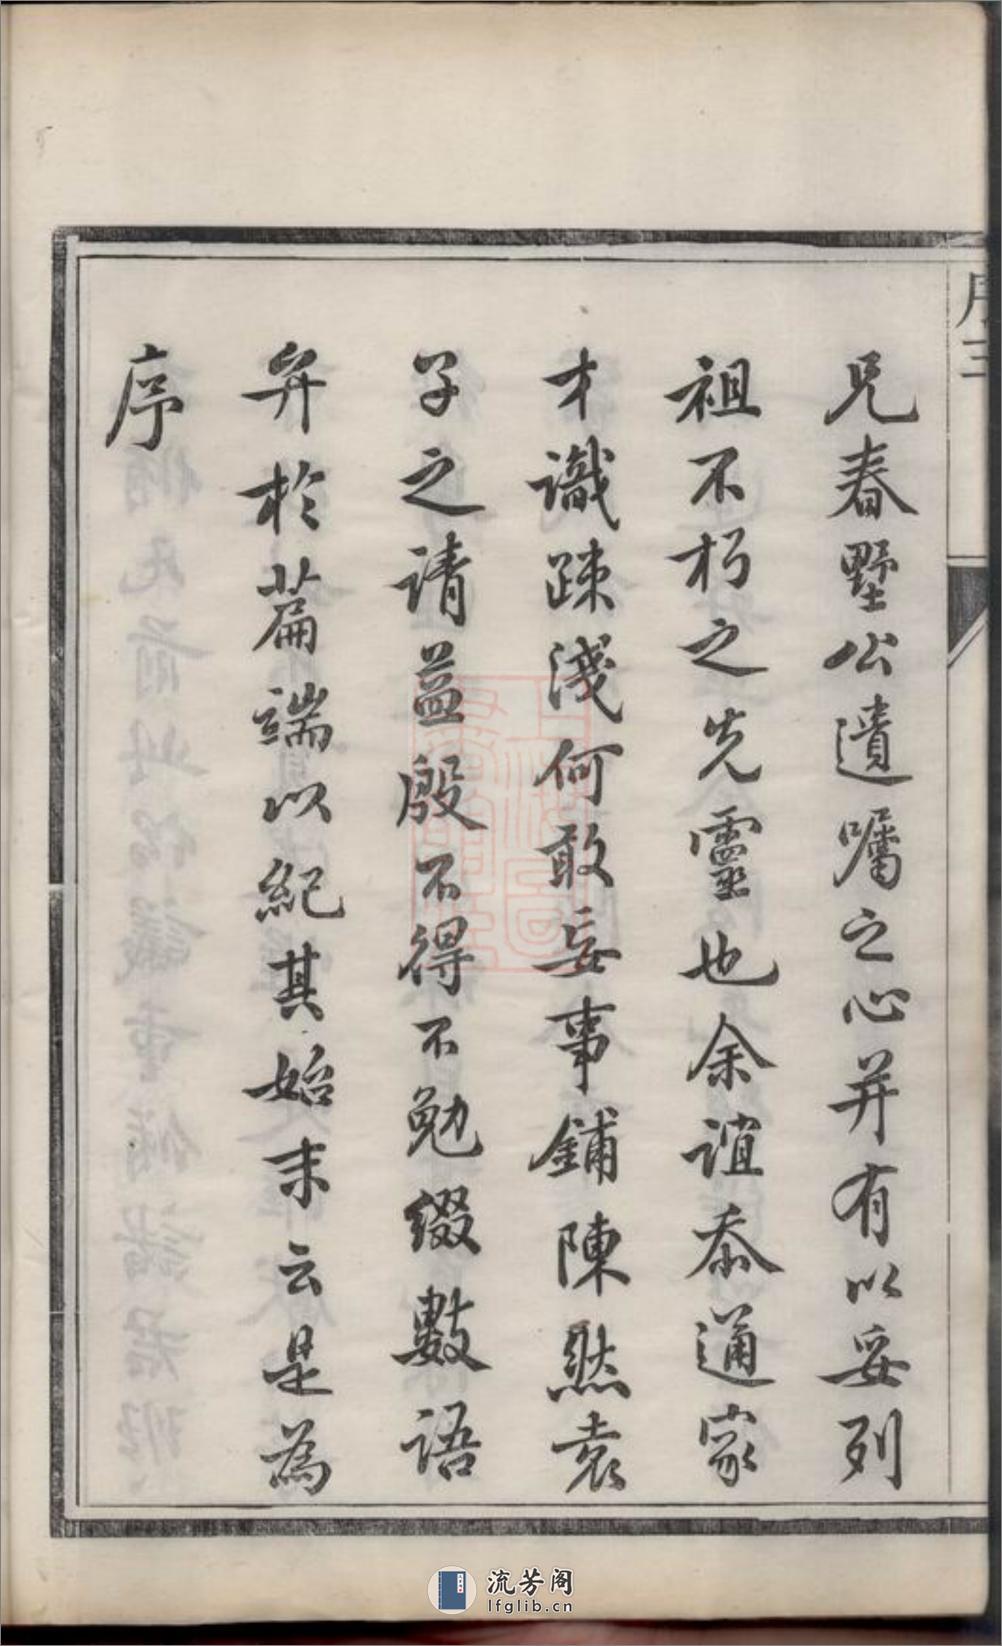 序三
兄春墅公遺囑之心并有以妥列
祖不朽之先靈也余誼忝通家
才識踈淺何敢妄事鋪陳然袁
子之請益殷不得不勉綴數語
弁於篇端以紀其始末云是為
序
流芳阁
lfglib.cn